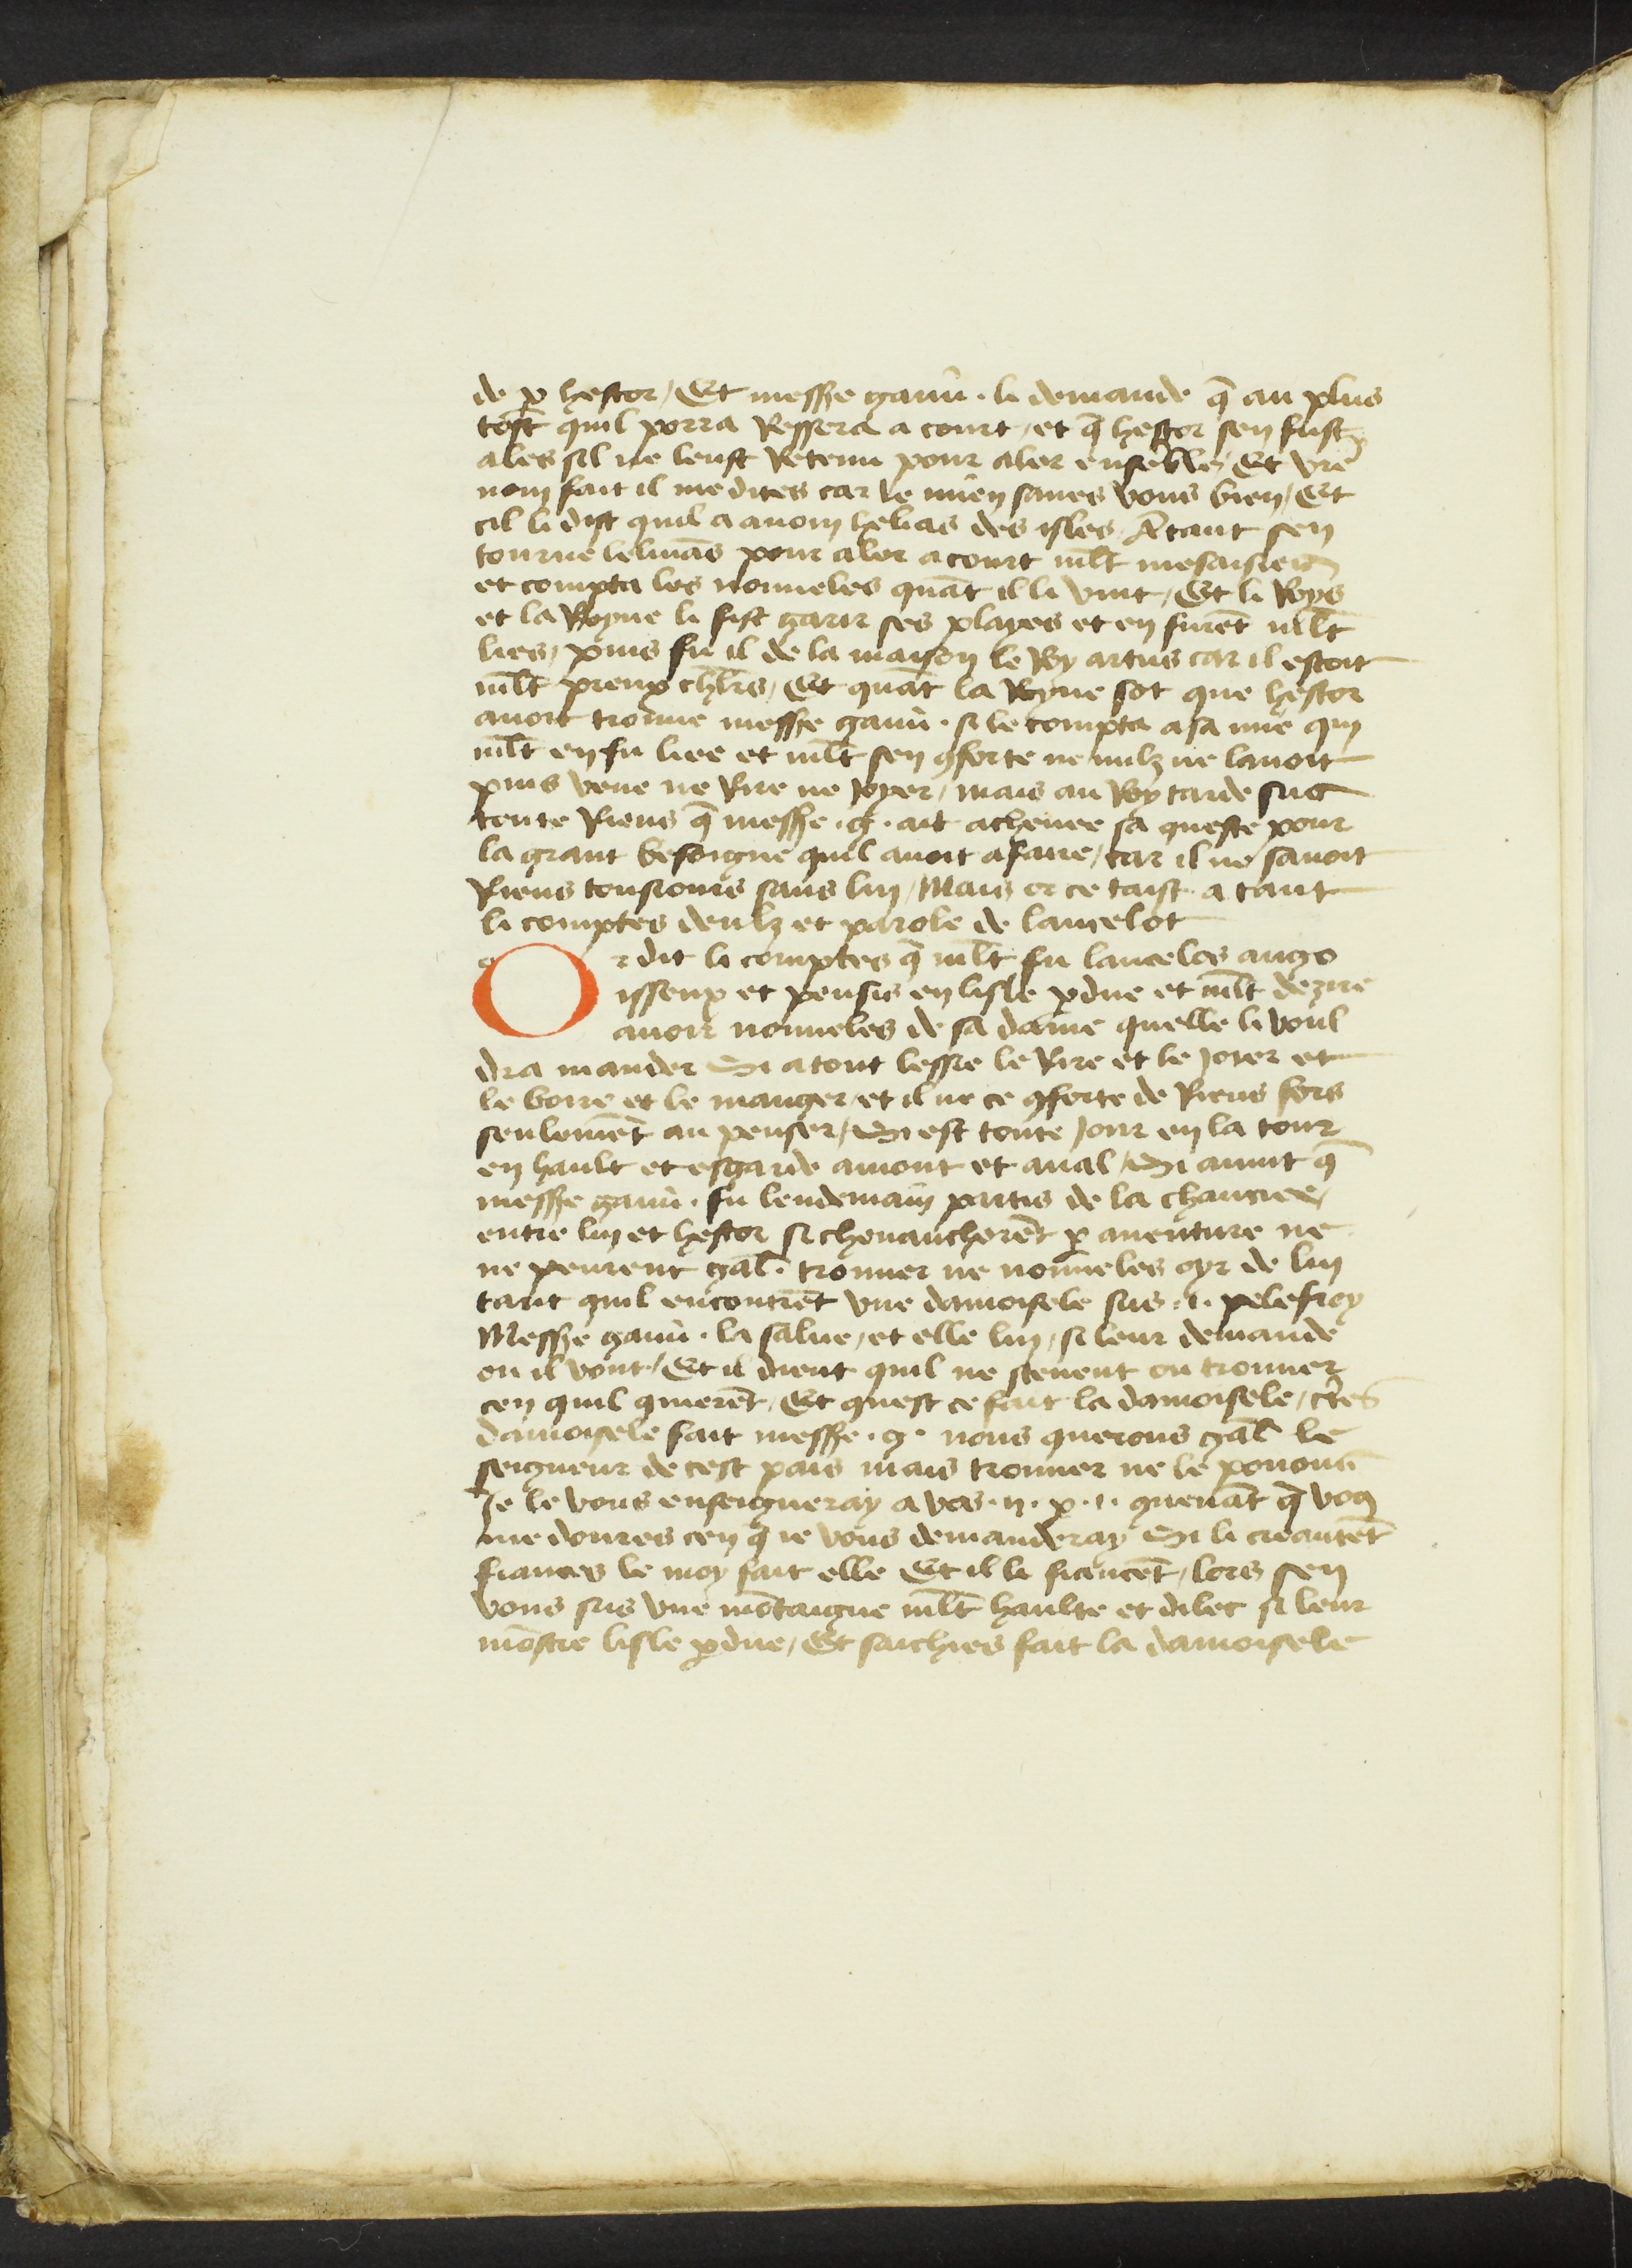 de ꝑ hestor / Et messe gauuͥ · li demande q̄ au plus
tost quil porra Ressera a court / et q̄ hestor sen fust
ales sil ne leust Retenu pour aler ensēble / Et vr̄e
nom fait il me dites car le mien saues vous bien / Et
cil li dist quil a a nom helias des isles Atant sen
tourne heliās pour aler a court ml̄t mesaisieu
et compta les nouueles quāt il li vint / Et li Roys
et la Royne li fist garir ses playes et en furēt ml̄t
lies / puis fu il de la maison le Roy artus car il estoit
ml̄t preux chl̄rs / Et quāt la Royne sot que hestor
auoit trouue messe gauuͥ · si le compta a sa niie qui
ml̄t en fu liee et ml̄t sen ꝯforte ne nulz ne lauoit
puis veue ne Rire ne Joyer / mais au Roy tarde sur
toute Riens q̄ messe · g · ait acheuee sa queste pour
la grant besoigne quil auoit a faire / car il ne sauoit
Riens tousiours sans luy / Mais or ce taist a tant
li comptes deulz et parole de lancelot
Or dit li comptes q̄ ml̄t fu lancelos ango
isseux et pensis en lisle ꝑdue et ml̄t dezire
auoir nouueles de sa dame quelle li voul
dra mander Si a tout lessie le Rire et le Joier et
le boire et le manger / et il ne ce ꝯforte de Riens fors
seulemēt au penser / Si est toute Jour en la tour
en hault et esgarde amont et aual / Si auint q̄
messe gauuͥ · fu lendemain partis de la chauciee /
entre luy et hestor si cheuaucherēt ꝑ auenture ne
ne peurent gal̄ · trouuer ne nouueles oyr de luy
tant quil encontrēt vne damoisele sus · i · pelefroy
Messe gauuͥ · la salue / et elle luy / si leur demande
ou il vont / Et il dient quil ne sceuent ou trouuer
cen quil quierēt / Et quest ce fait la damoisele / c̄tes
damoisele fait messe · g · nous querons gal̄ le
seigneur de cest pais mais trouuer ne le pouons
Je le vous enseigneray a vos · ij · ꝑ · i · quenāt q̄ voꝰ
me donres cen q̄ ie vous demanderay Si li creantēt
fiances le moy fait elle Et il li fiencēt / lors sen
vons sus vne mōtaigne ml̄t haulte et dilec si leur
mōstre lisle ꝑdue / Et saichies fait la damoisele